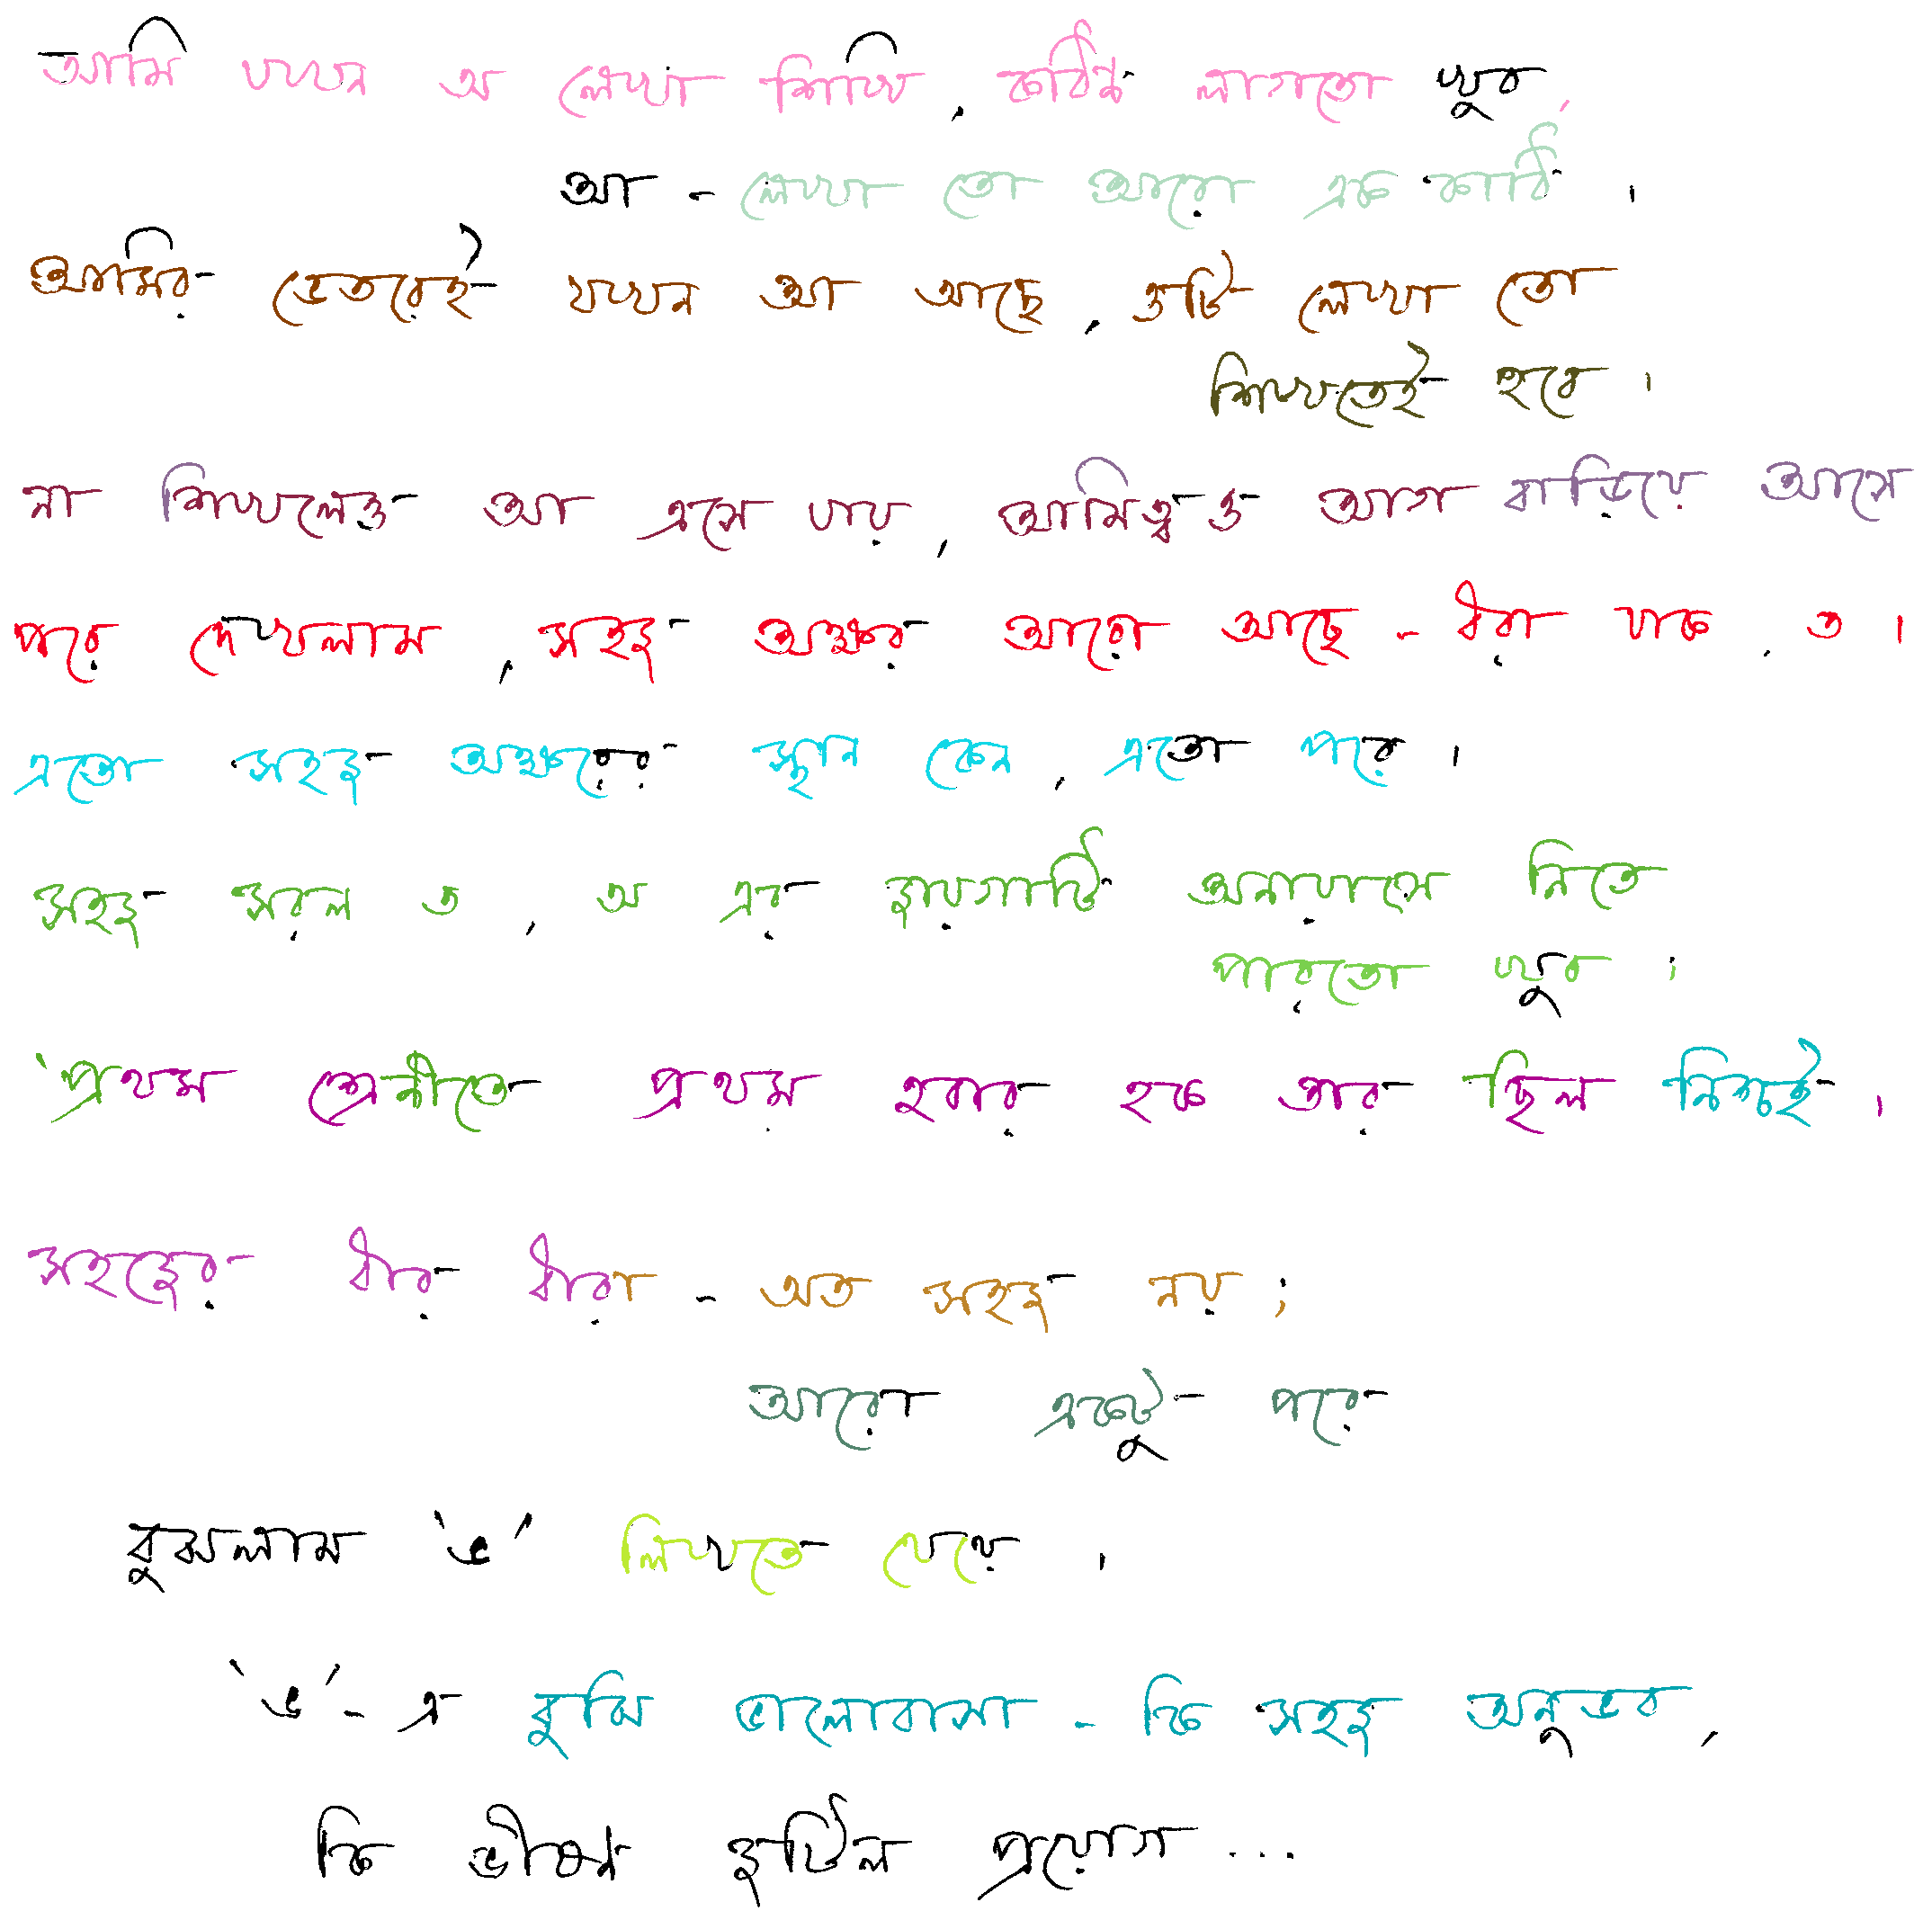 আমি যখন অ লেখা শিখি, কঠিন লাগতো খুব,
আ - লেখা তো আরো এক কাঠি ।
আমির ভেতরেই যখন আ আছে, ওটি লেখা তো
শিখতেই হবে ।
না শিখলেও আ এসে যায়, আমিত্বও আগ বাড়িয়ে আসে
পরে দেখলাম, সহজ অক্ষর আরো আছে - ধরা যাক, ত ।
এতো সহজ অক্ষরের স্থান কেন, এতো পরে ।
সহজ সরল ত, অ এর জায়গাটি অনায়াসে নিতে
পারতো খুব ।
'প্রথম শ্রেনীতে প্রথম হবার হক তার ছিল নিশ্চই ।
সহজের ধীর ধীরা - অত সহজ নয় ;
আরো একটু পরে
বুঝলাম 'ভ' লিখতে যেয়ে ।
'ভ' - এ বুঝি ভালোবাসা - কি সহজ অনুভব,
কি ভীষন জটিল প্রয়োগ ...